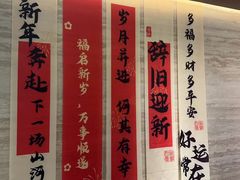 新年奔赴下一场山河
福启新岁，万事顺遂
岁月并进 何其有幸
辞旧迎新
多福多财多平安
好运常在